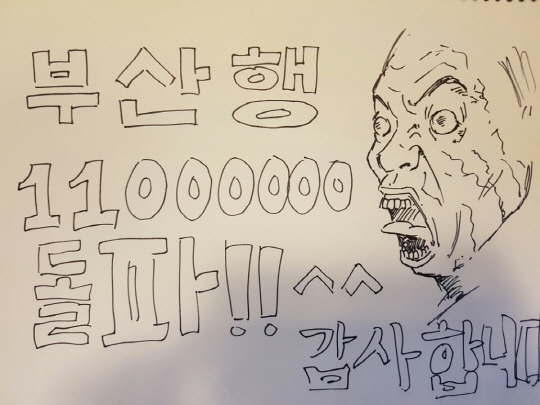 부산행
11000000
돌파!! ^^
감사합니다